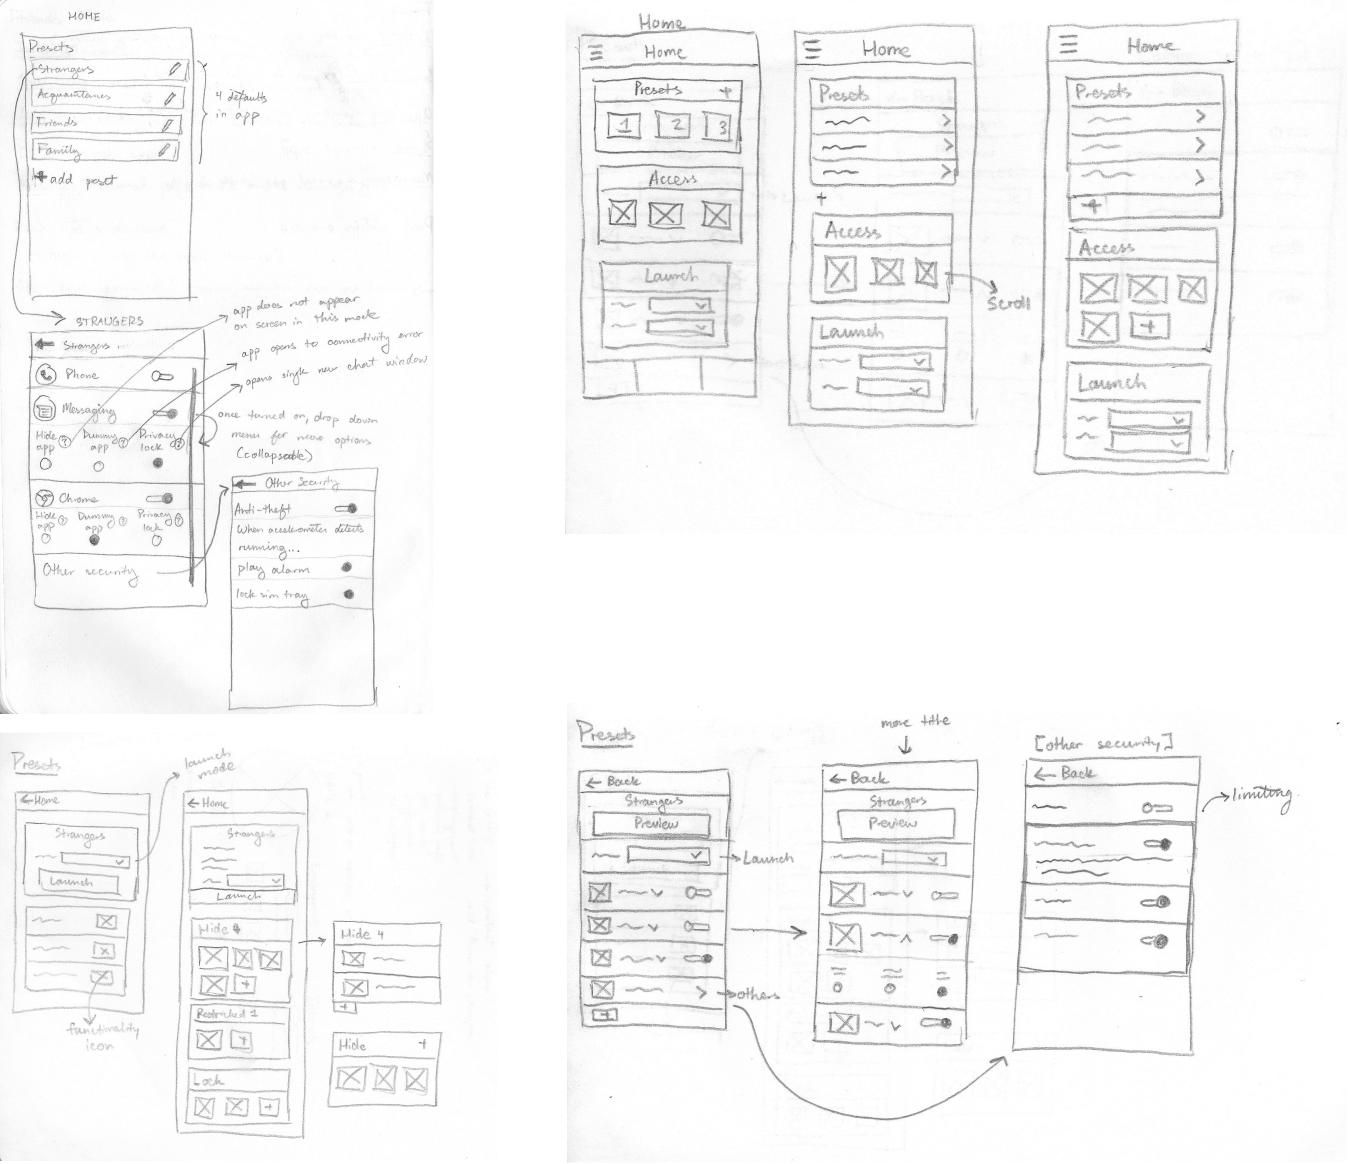 HOME
Presets
Strangers
Acquaintances
Friends
Family
+ add preset
4 defaults
in app
STRANGERS
← Strangers
Phone
Messaging
Hide app ?
Dummy app ?
Privacy lock ?
Chrome
Hide app ?
Dummy app ?
Privacy lock ?
Other security
app does not appear
on screen in this mode
app opens to connectivity error
opens single new chat window
once turned on, drop down
menu for more options
(collapseable)
← Other Security
Anti-theft
When accelerometer detects
running...
play alarm
lock sim tray
Home
Home
Presets +
1 2 3
Access
Launch
Home
Presets
+
Access
Scroll
Launch
Home
Presets
+
Access
+
Launch
Presets
launch
mode
← Home
Strangers
Launch
functionality
icon
← Home
Strangers
Launch
Hide 4
+
Restricted 1
+
Lock
+
Hide 4
+
Hide +
Presets
← Back
Strangers
Preview
Launch
others
+
more title
← Back
Strangers
Preview
[other security]
← Back
limiting